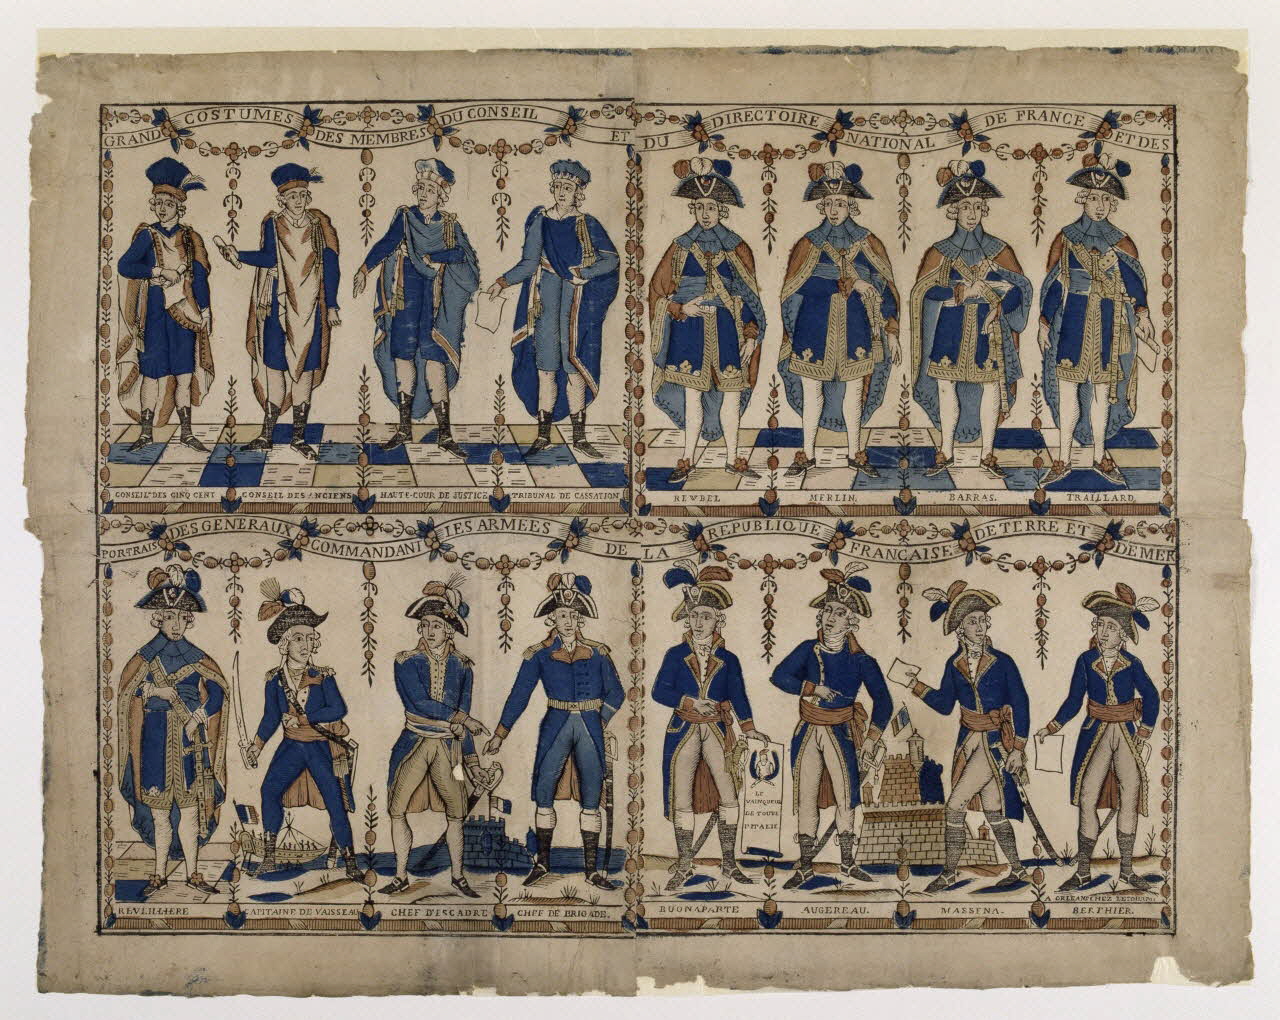 GRAND COSTUMES DES MEMBRES DU CONSEIL ET DU DIRECTOIRE NATIONAL DE FRANCE ET DES
CONSEIL DES CINQ CENT
CONSEIL DES ANCIENS
HAUTE-COUR DE JUSTICE
TRIBUNAL DE CASSATION
REWBEL
MERLIN.
BARRAS.
TRAILLARD.
PORTRAIS DES GENERAUX COMMANDANT LES ARMEES DE LA REPUBLIQUE FRANÇAISE DE TERRE ET DE MER
LE
VAINQUEUR
DE TOUTE
L'ITALIE
REVEILLIERE
CAPITAINE DE VAISSEAU
CHEF D'ESCADRE
CHEF DE BRIGADE.
BUONAPARTE
AUGEREAU.
MASSENA.
A ORLEANS CHEZ LETOURMI
BERTHIER.